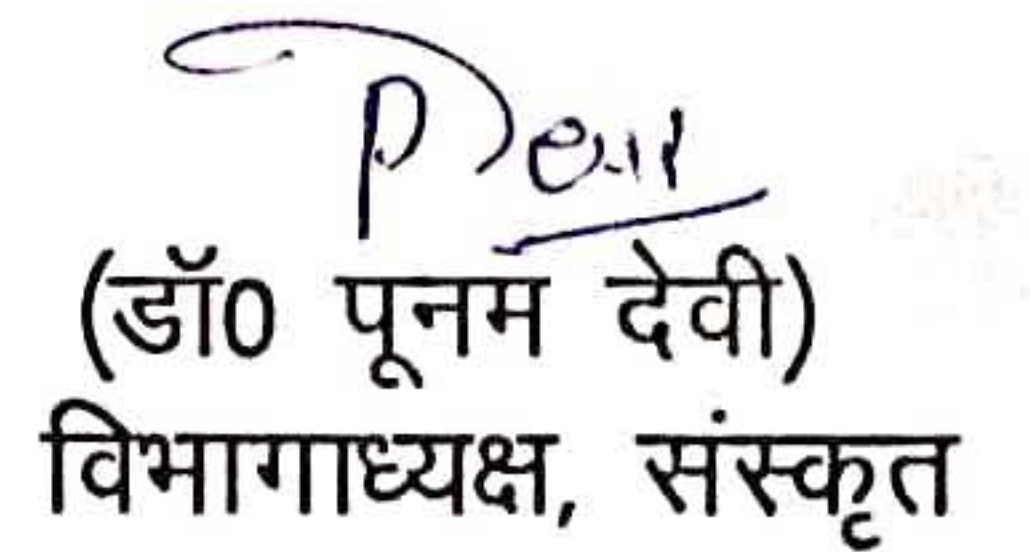 (डॉ0 पूनम देवी)
विभागाध्यक्ष, संस्कृत